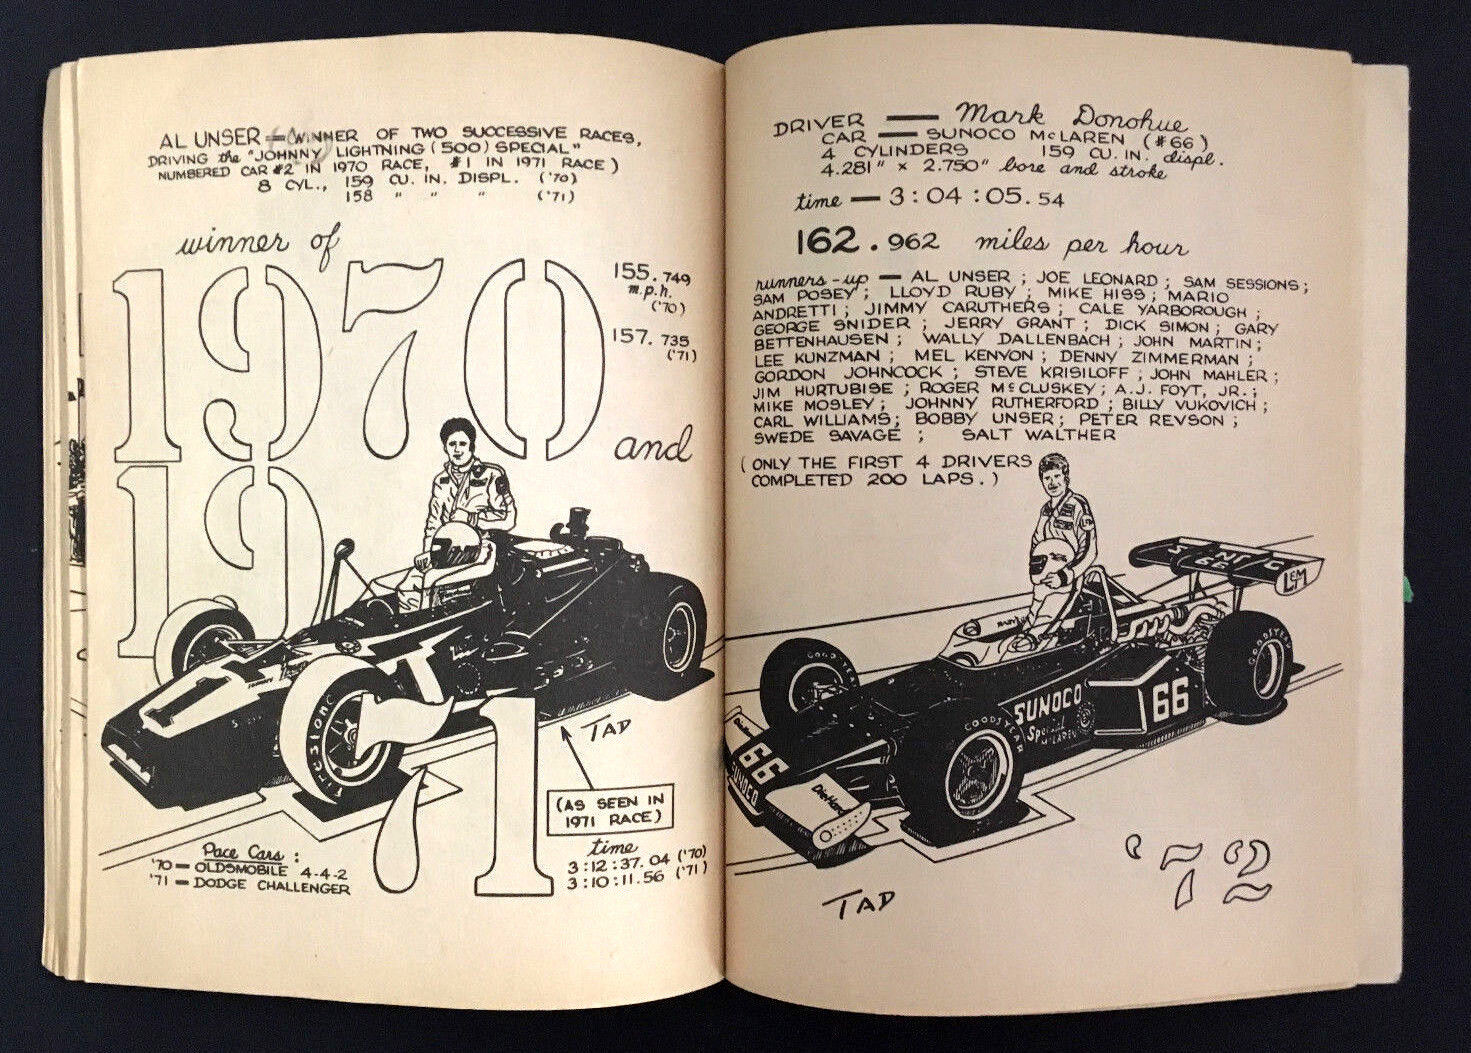 AL UNSER — WINNER OF TWO SUCCESSIVE RACES,
DRIVING the "JOHNNY LIGHTNING (500) SPECIAL"
NUMBERED CAR #2 IN 1970 RACE, #1 IN 1971 RACE)
8 CYL., 159 CU. IN. DISPL. ('70)
158 " " " ('71)
winner of
1970
155.749
m.p.h.
('70)
157.735
('71)
and
1971
1
FIRESTONE
TAD
(AS SEEN IN
1971 RACE)
Pace Cars :
'70 — OLDSMOBILE 4-4-2
'71 — DODGE CHALLENGER
time
3:12:37.04 ('70)
3:10:11.56 ('71)
DRIVER — Mark Donohue
CAR — SUNOCO McLAREN (#66)
4 CYLINDERS 159 CU. IN. displ.
4.281" x 2.750" bore and stroke
time — 3:04:05.54
162.962 miles per hour
runners-up — AL UNSER ; JOE LEONARD ; SAM SESSIONS ;
SAM POSEY ; LLOYD RUBY ; MIKE HISS ; MARIO
ANDRETTI ; JIMMY CARUTHERS ; CALE YARBOROUGH ;
GEORGE SNIDER ; JERRY GRANT ; DICK SIMON ; GARY
BETTENHAUSEN ; WALLY DALLENBACH ; JOHN MARTIN ;
LEE KUNZMAN ; MEL KENYON ; DENNY ZIMMERMAN ;
GORDON JOHNCOCK ; STEVE KRISILOFF ; JOHN MAHLER ;
JIM HURTUBISE ; ROGER McCLUSKEY ; A.J. FOYT, JR. ;
MIKE MOSLEY ; JOHNNY RUTHERFORD ; BILLY VUKOVICH ;
CARL WILLIAMS ; BOBBY UNSER ; PETER REVSON ;
SWEDE SAVAGE ; SALT WALTHER
(ONLY THE FIRST 4 DRIVERS
COMPLETED 200 LAPS.)
66
LEM
GOODYEAR
GOODYEAR
GOODYEAR
SUNOCO
Special
McLAREN
66
66
SUNOCO
DieHard
TAD
'72